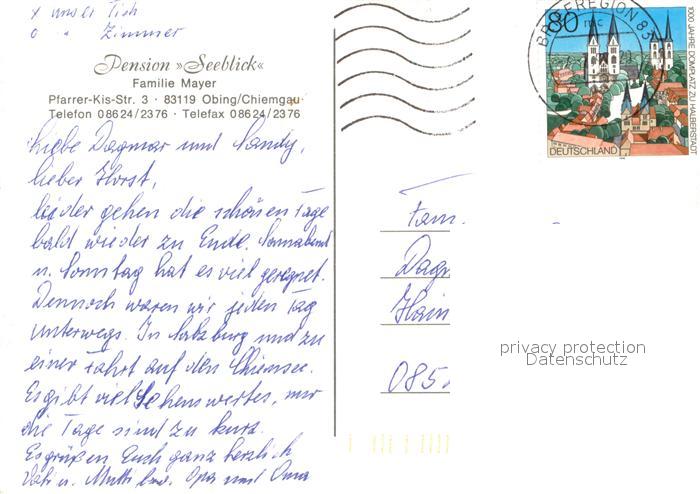 x unser Tisch
o " Zimmer
Pension »Seeblick«
Familie Mayer
Pfarrer-Kis-Str. 3 · 83119 Obing/Chiemgau
Telefon 08624/2376 · Telefax 08624/2376
Liebe Dagmar und Sandy,
lieber Horst,
leider gehen die schönen Tage
bald wieder zu Ende. Sonnabend
u. Sonntag hat es viel geregnet.
Dennoch waren wir jeden Tag
unterwegs. In Salzburg und zu
einer Fahrt auf den Chiemsee.
Es gibt viel Sehenswertes, nur
die Tage sind zu kurz.
Es grüßen Euch ganz herzlich
Vati u. Mutti bzw. Opa und Oma
BRIEFREGION 83
80
1000 JAHRE DOMPLATZ ZU HALBERSTADT
DEUTSCHLAND
Fam.
Dagm
Hain
085
privacy protection
Datenschutz